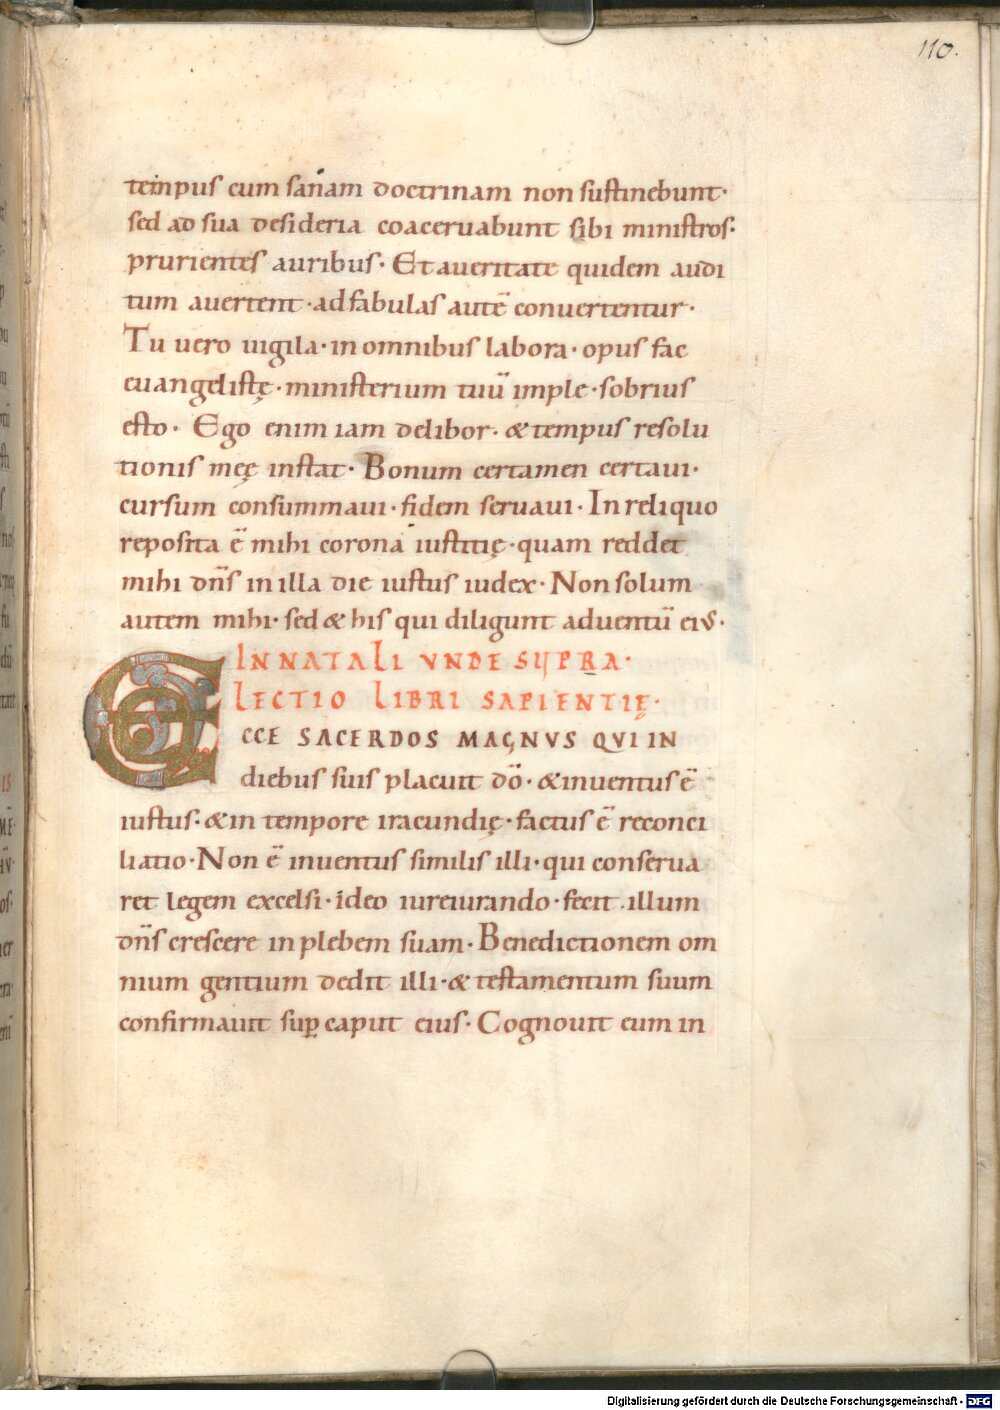 110.
tempus cum sanam doctrinam non sustinebunt·
sed ad sua desideria coaceruabunt sibi ministros·
prurientes auribus· Et aueritate quidem audi
tum auertent· ad fabulas autē conuertentur·
Tu uero uigila· in omnibus labora· opus fac
euangelistę· ministerium tuū imple· sobrius
esto· Ego enim iam delibor· & tempus resolu
tionis meę instat· Bonum certamen certaui·
cursum consummaui· fidem seruaui· In reliquo
reposita ē mihi corona iustitię· quam reddet
mihi dn̄s in illa die iustus iudex· Non solum
autem mihi· sed & his qui diligunt aduentū eius·
IN NATALI VNDE SUPRA·
LECTIO LIBRI SAPIENTIĘ·
ECCE SACERDOS MAGNVS QVI IN
diebus suis placuit dō· & inuentus ē
iustus· & in tempore iracundię· factus ē reconci
liatio· Non ē inuentus similis illi· qui conserua
ret legem excelsi· ideo iureiurando· fecit illum
dn̄s crescere in plebem suam· Benedictionem om
nium gentium dedit illi· & testamentum suum
confirmauit suꝑ caput eius· Cognouit eum in
Digitalisierung gefördert durch die Deutsche Forschungsgemeinschaft · DFG